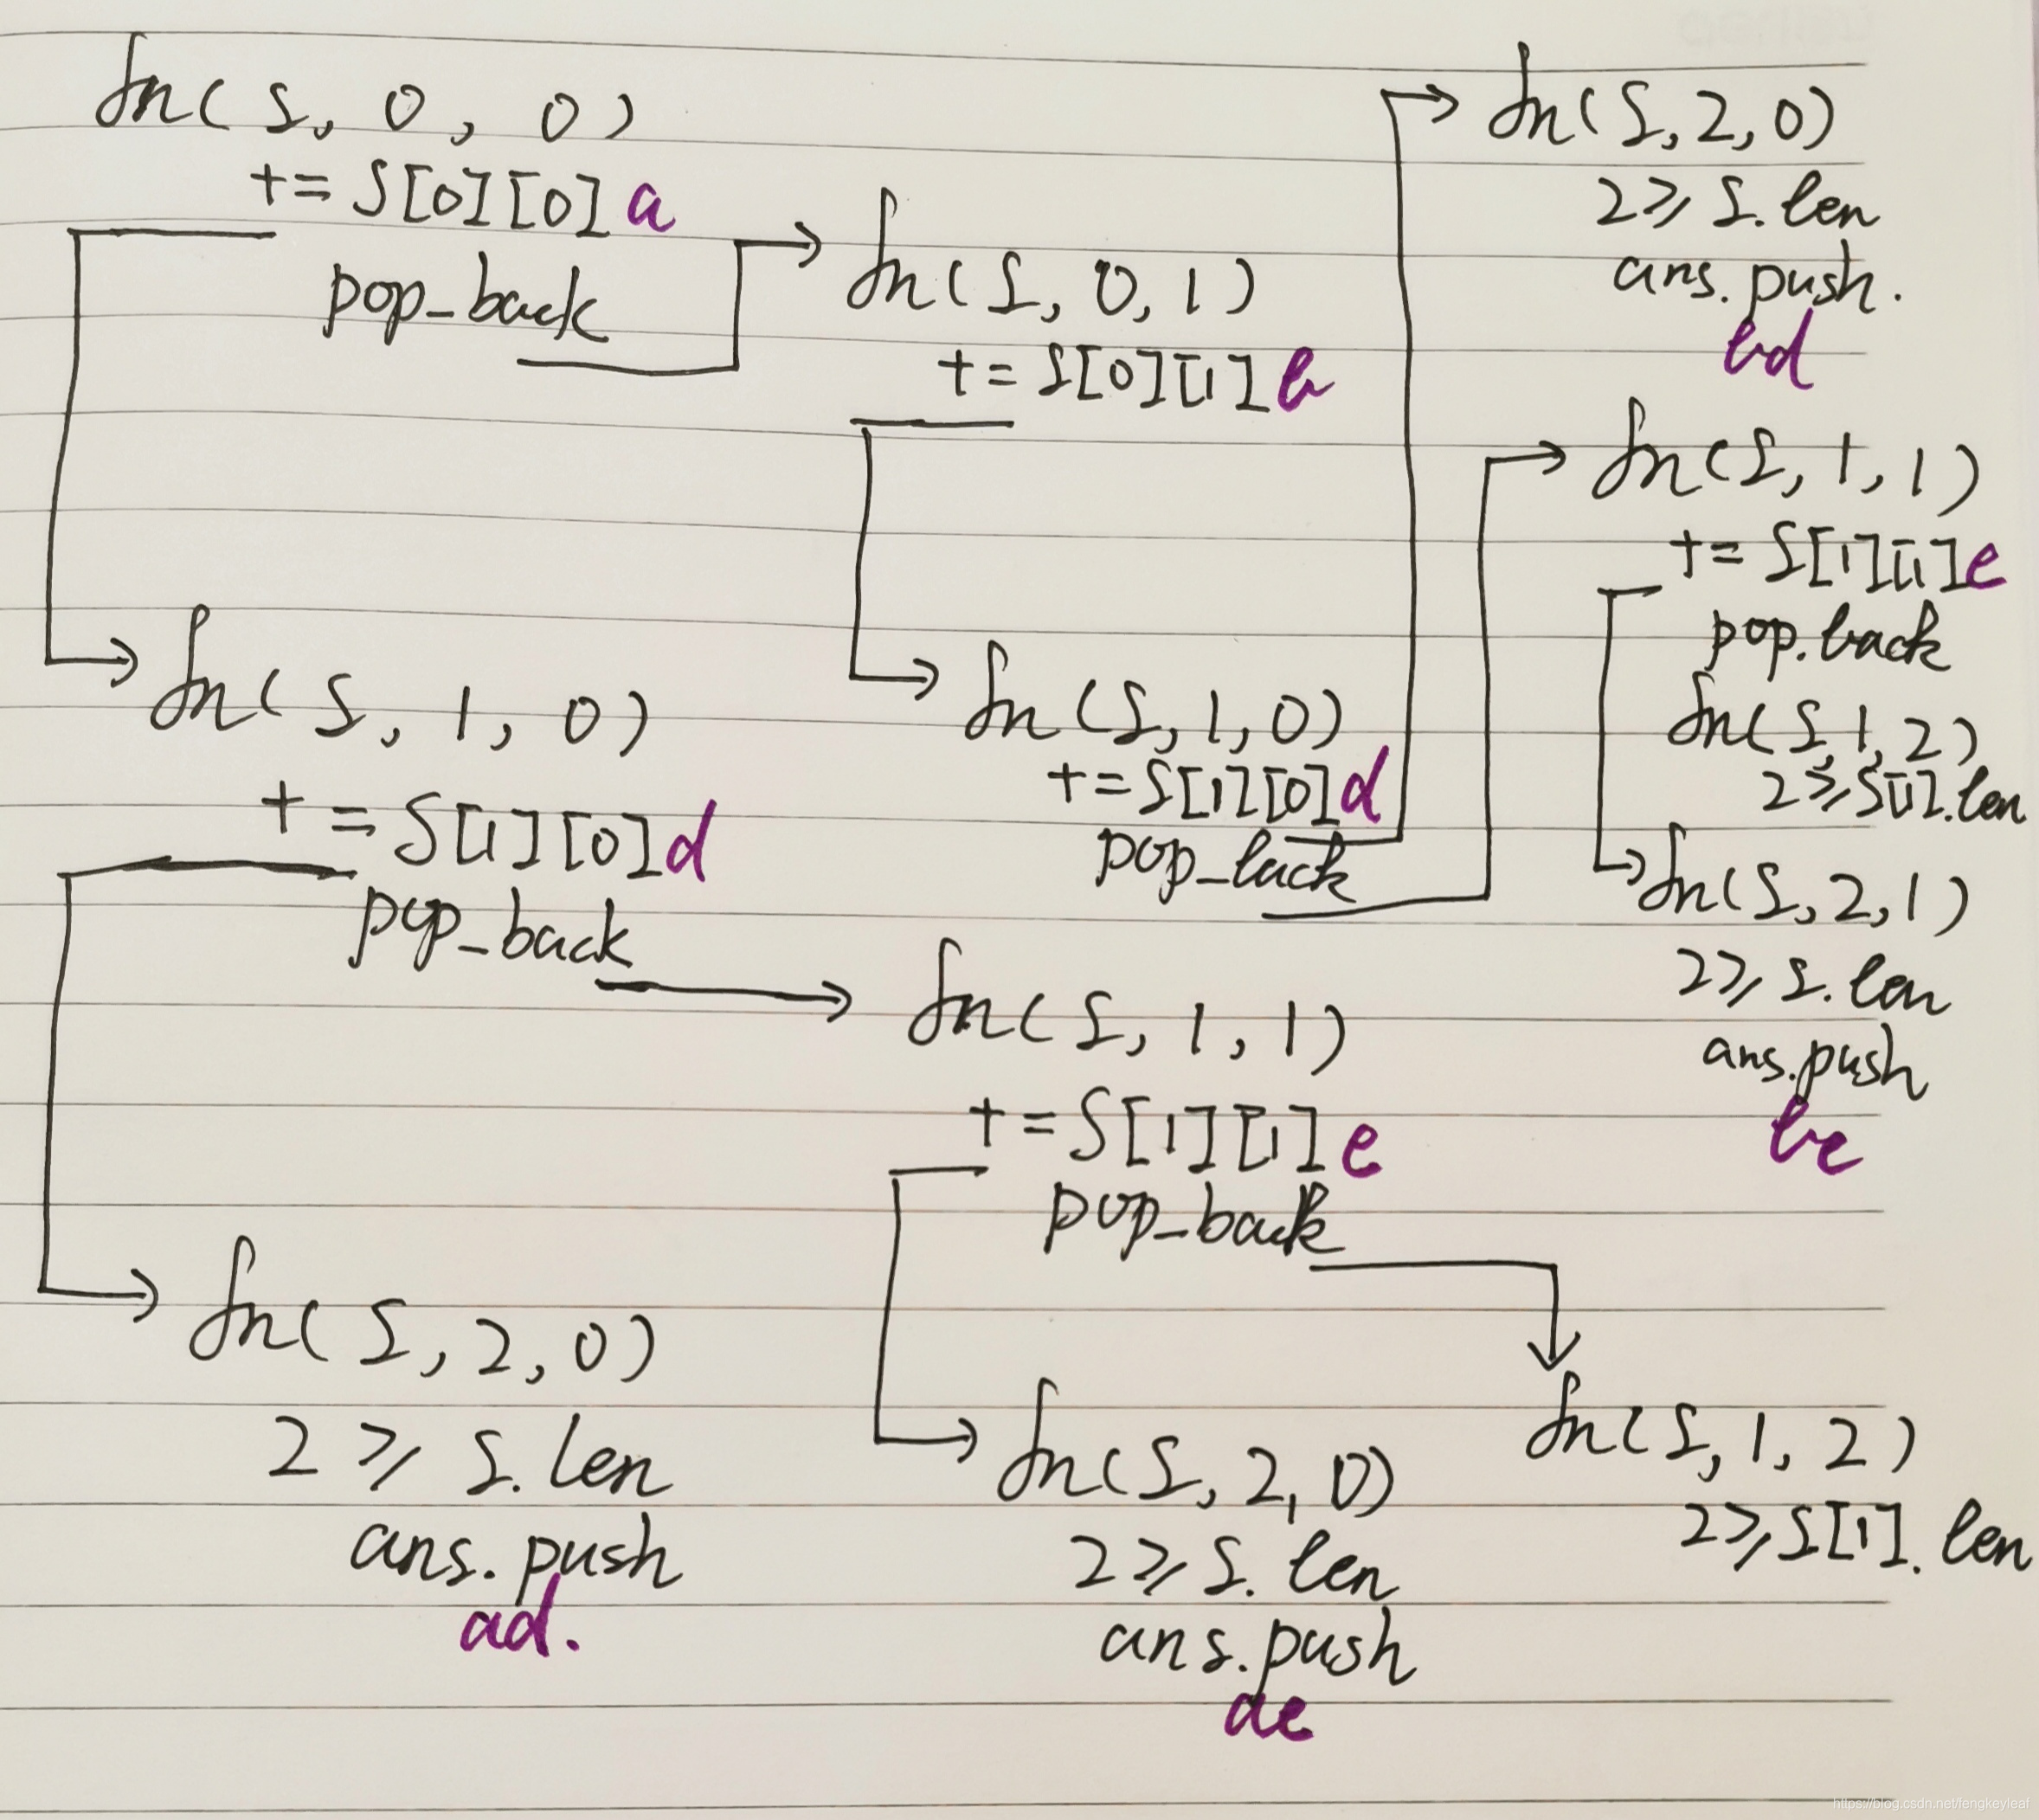 fn(S, 0, 0)
+= S[0][0] a
pop_back
fn(S, 0, 1)
+= S[0][1] b
fn(S, 2, 0)
2 ≥ S.len
ans.push.
bd
fn(S, 1, 1)
+= S[1][1] e
pop.back
fn(S, 1, 2)
2 ≥ S[1].len
fn(S, 2, 1)
2 ≥ S.len
ans.push
be
fn(S, 1, 0)
+= S[1][0] d
pop_back
fn(S, 1, 0)
+= S[1][0] d
pop_back
fn(S, 1, 1)
+= S[1][1] e
pop_back
fn(S, 2, 0)
2 ≥ S.len
ans.push
ad.
fn(S, 2, 0)
2 ≥ S.len
ans.push
ae
fn(S, 1, 2)
2 ≥ S[1].len
https://blog.csdn.net/fengkeyleaf